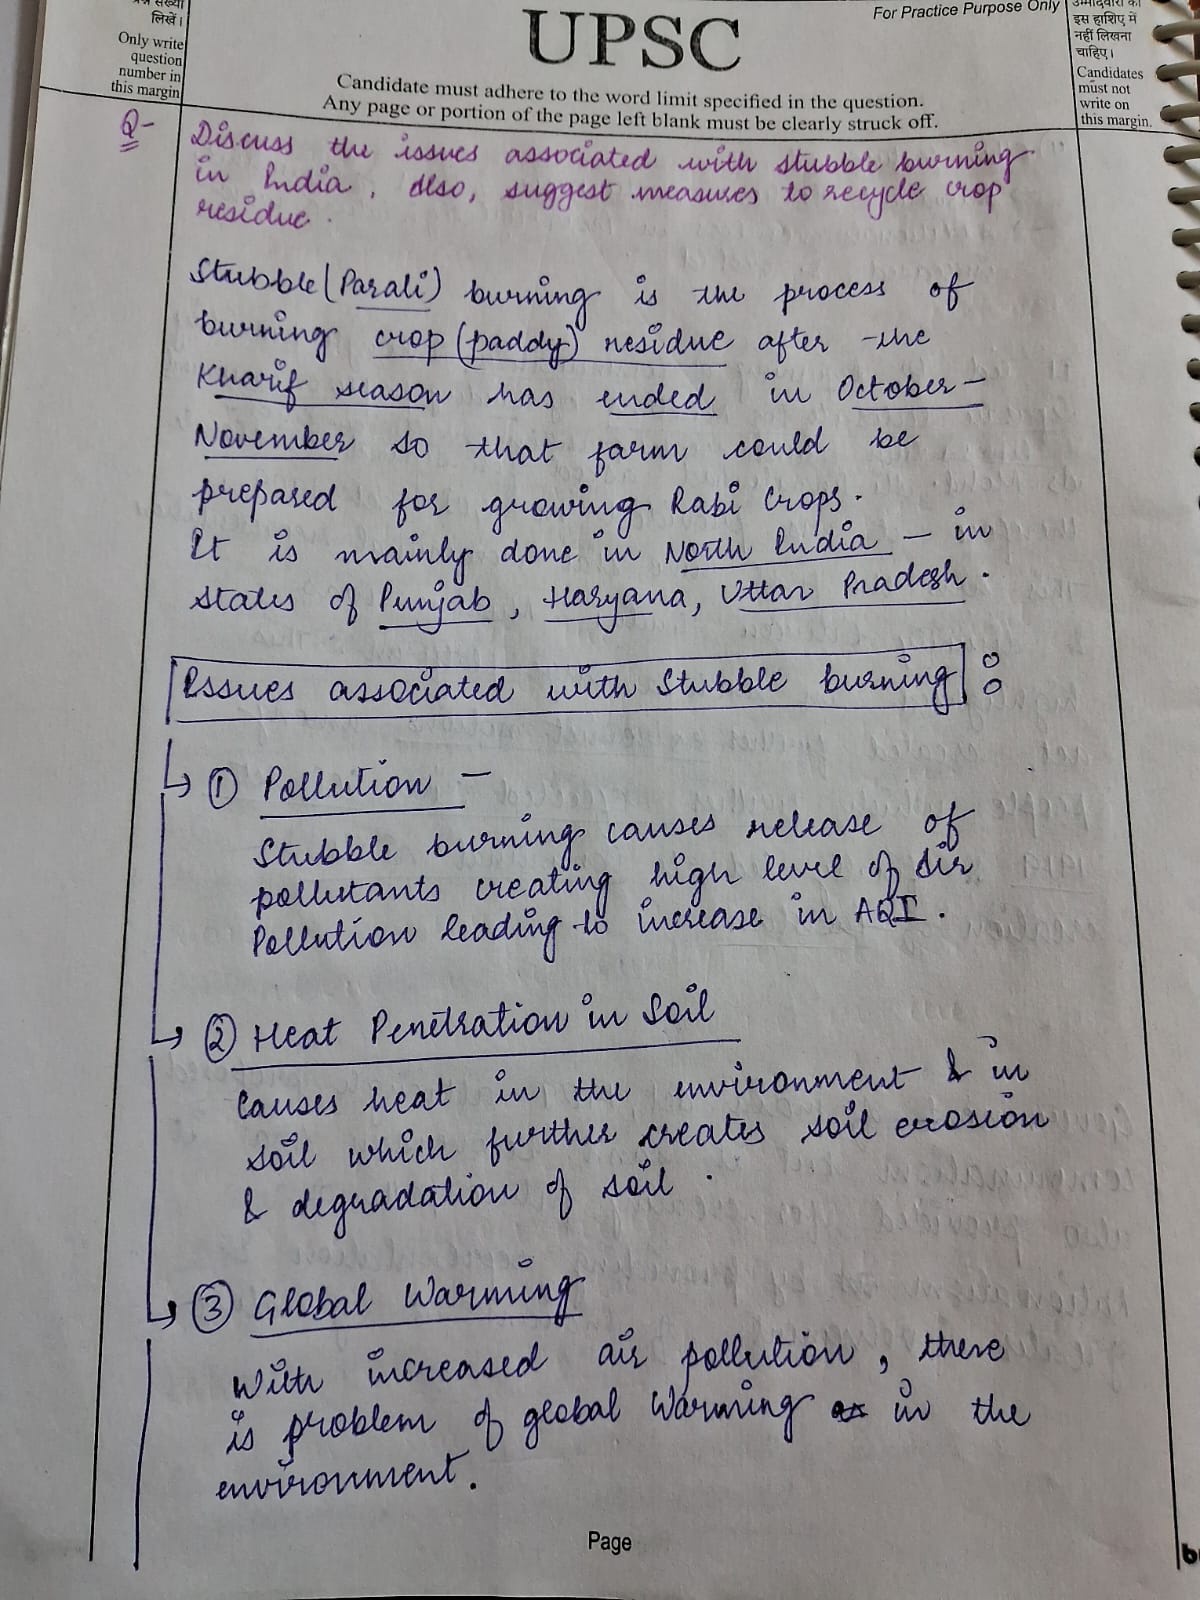 लिखें।
Only write
question
number in
this margin
For Practice Purpose Only
UPSC
Candidate must adhere to the word limit specified in the question.
Any page or portion of the page left blank must be clearly struck off.
इस हाशिए में
नहीं लिखना
चाहिए।
Candidates
must not
write on
this margin.
Q- Discuss the issues associated with stubble burning
in India, Also, suggest measures to recycle crop
residue.
Stubble (Parali) burning is the process of
burning crop (paddy) residue after the
Kharif season has ended in October -
November so that farm could be
prepared for growing Rabi Crops.
It is mainly done in North India - in
states of Punjab, Haryana, Uttar Pradesh.
Issues associated with Stubble burning :
① Pollution -
Stubble burning causes release of
pollutants creating high level of Air
Pollution leading to increase in AQI.
② Heat Penetration in Soil
Causes heat in the environment & in
soil which further creates soil erosion
& degradation of soil.
③ Global Warming
With increased air pollution, there
is problem of global warming in the
environment.
Page